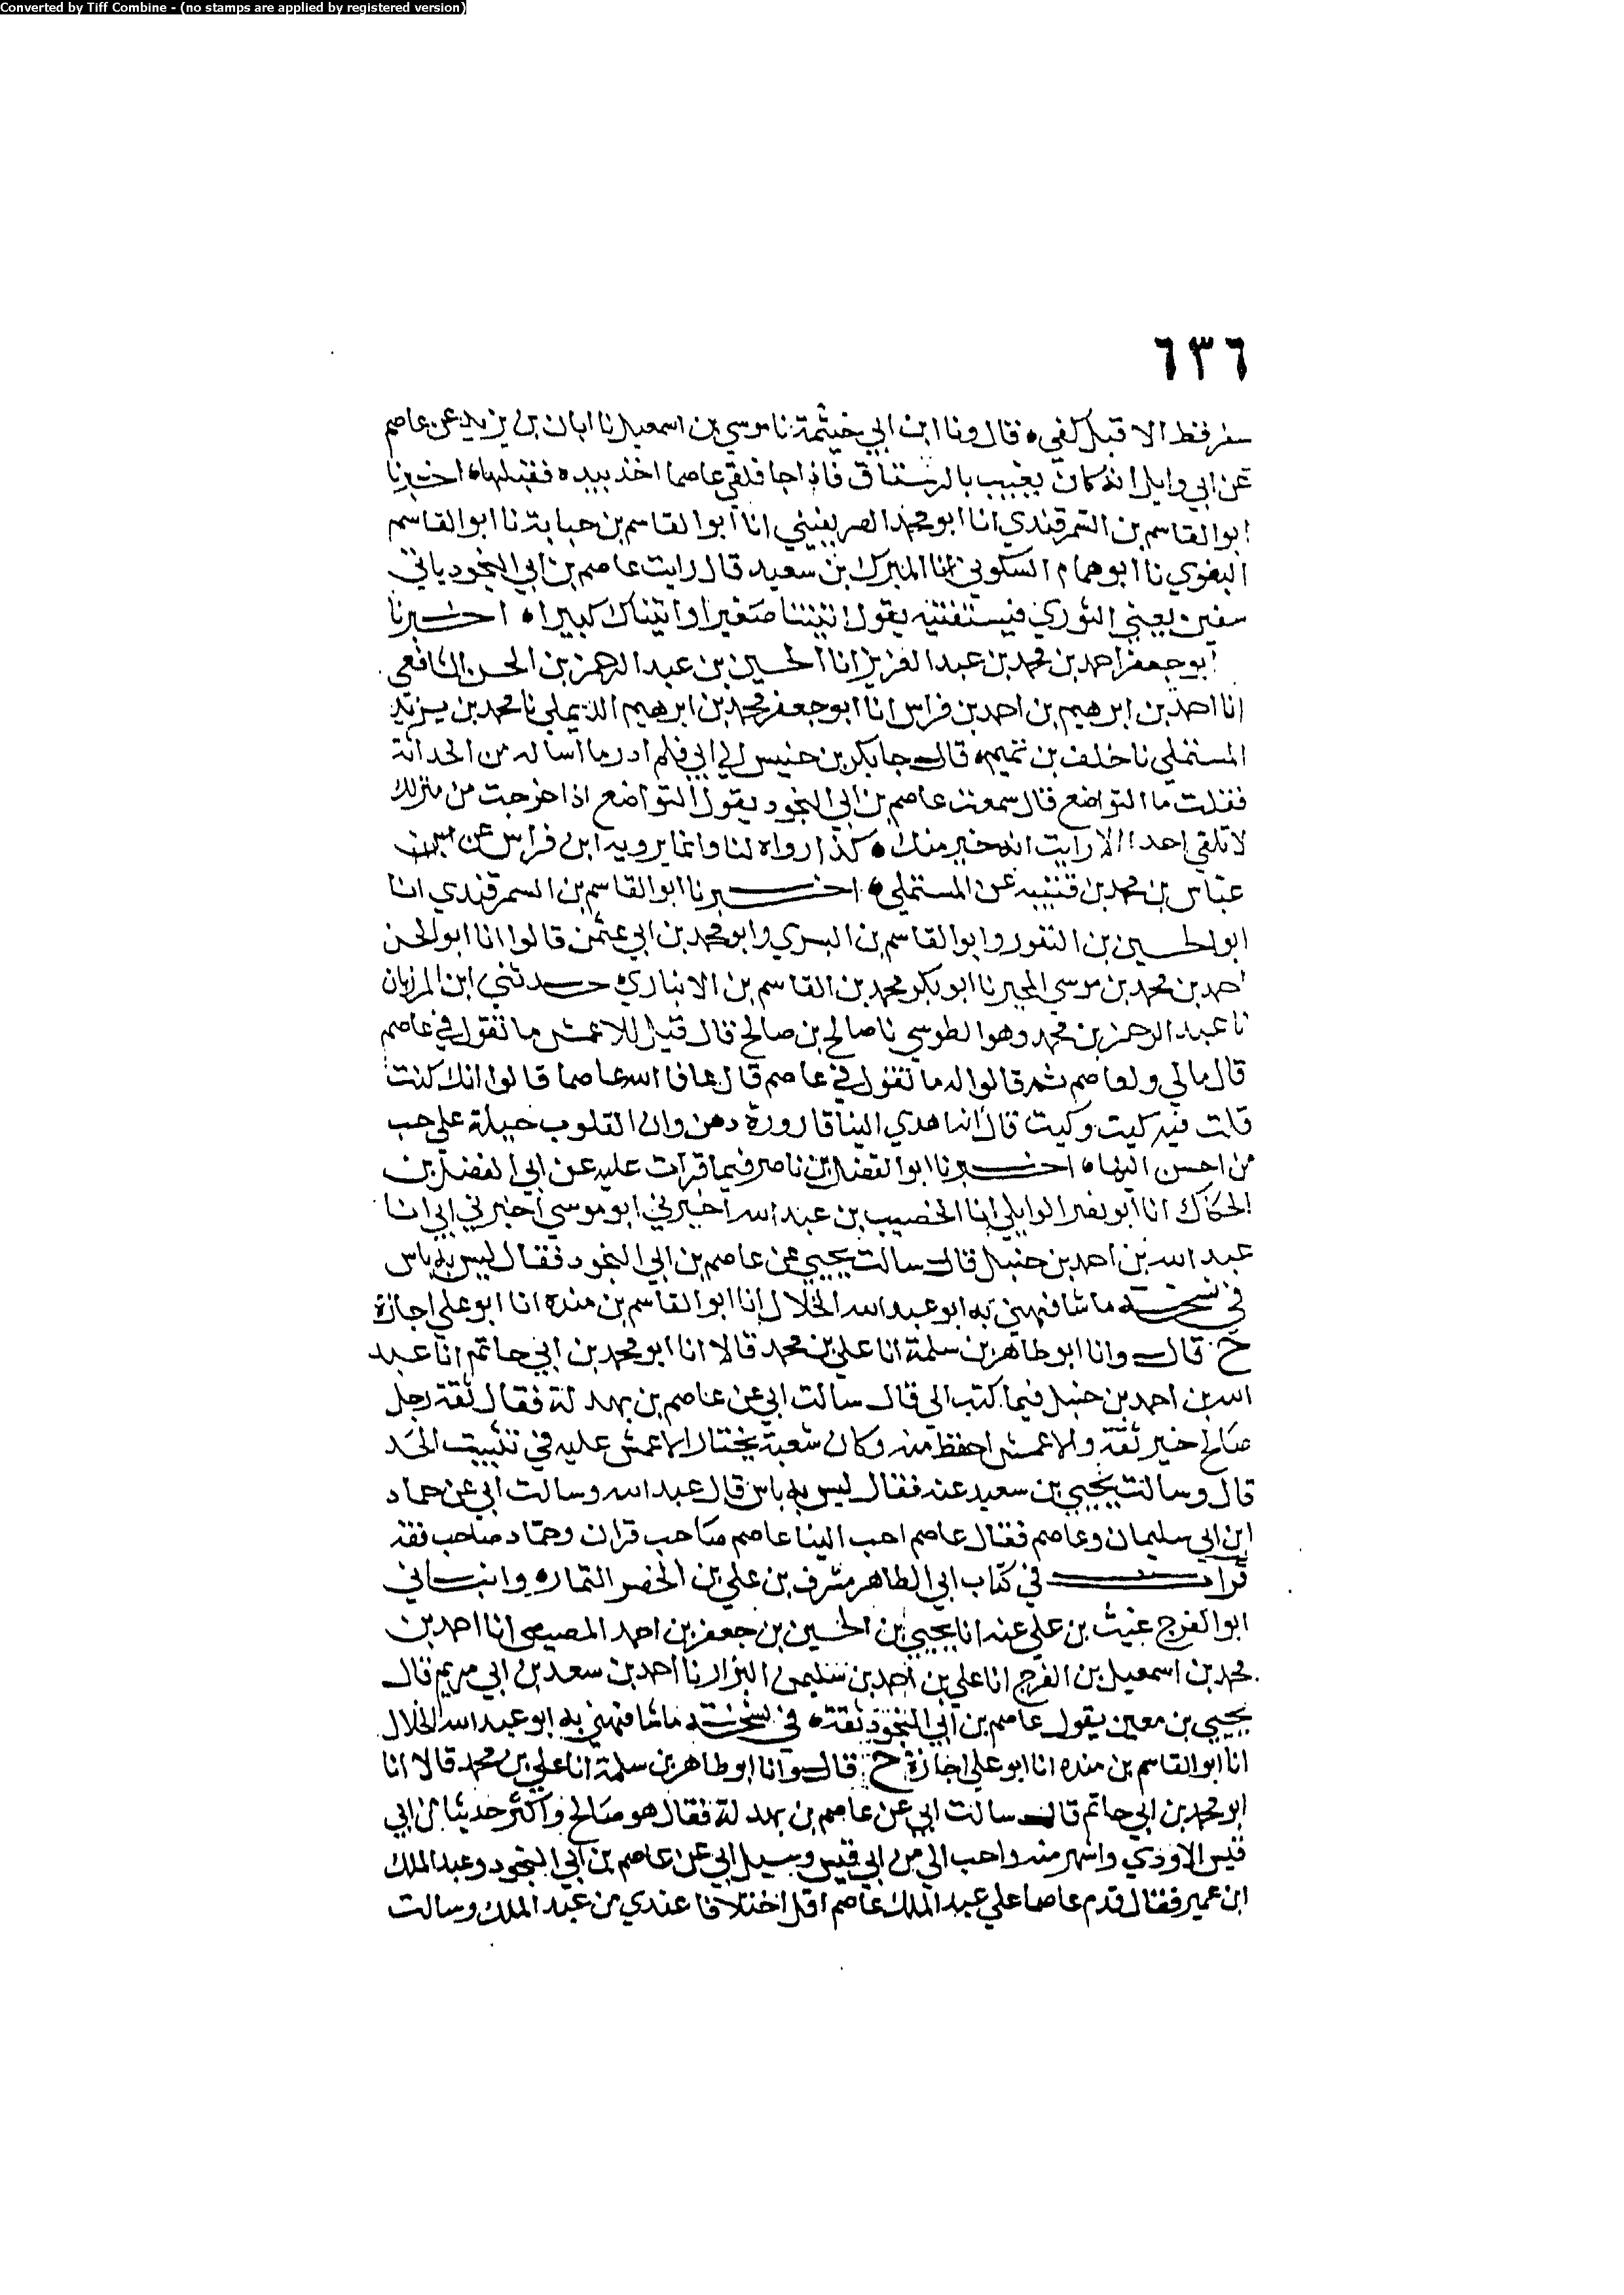 Converted by Tiff Combine - (no stamps are applied by registered version)
٦٣٦
سفر قط الا قبل كفي ٥ قال ونا ابن ابي خيثمة نا موسي بن اسمعيل نا ابان بن يزيد عن عاصم
عن ابي وايل انه كان يغيب بالرستاق فاذا جا فلقي عاصما اخذ بيده فقبلها ٥ اخبرنا
ابو القاسم بن السمرقندي انا ابو محمد الصريفيني انا ابو القاسم بن حبابة نا ابو القاسم
البغوي نا ابو همام السكوني نا المبرك بن سعيد قال رايت عاصم بن ابي النجود ياتي
سفين يعني الثوري فيستفتيه يقول اتيتنا صغيرا واتيناك كبيرا ٥ اخبرنا
ابو جعفر احمد بن محمد بن عبد العزيز انا الحسين بن عبد الرحمن بن الحسن الشافعي
انا احمد بن ابرهيم بن احمد بن فراس انا ابو جعفر محمد بن ابرهيم الديملي نا محمد بن يزيد
المستملي نا خلف بن تميم ٥ قال جا بكر بن خنيس الي ابي فلم ادر ما اساله من الحداثة
فقلت ما التواضع قال سمعت عاصم بن ابي النجود يقول التواضع اذا خرجت من منزلك
لا تلقي احدا الا رايت انه خير منك ٥ كذا رواه لنا وانما يرويه ابن فراس عن
عباس بن محمد بن قتيبه عن المستملي ٥ اخبرنا ابو القاسم بن السمرقندي انا
ابو الحسين بن النقور وابو القاسم بن البسري وابو محمد بن ابي عثمن قالوا انا ابو الحسن
احمد بن محمد بن موسي المجبر نا ابو بكر محمد بن القاسم بن الانباري حدثني ابن المرزبان
نا عبد الرحمن بن محمد وهو الطوسي نا صالح بن صالح قال قيل للاعمش ما تقول في عاصم
قال مالي ولعاصم ثم قالوا له ما تقول في عاصم قال عافا الله عاصما قالوا انك كنت
قلت فيه كيت وكيت قال انه اهدي الينا قارورة دهن وان القلوب جبلة علي حب
من احسن اليها ٥ اخبرنا ابو الفضل بن ناصر فيما قرات عليه عن ابي الفضل بن
الحكاك انا ابو نصر الوايلي انا الخصيب بن عبد الله اخبرني ابو موسي اخبرني ابي انا
عبد الله بن احمد بن حنبل قال سالت يحيي عن عاصم بن ابي النجود فقال ليس به باس
في نسخة ما شافهني به ابو عبد الله الخلال انا ابو القاسم بن منده انا ابو علي اجازة
ح قال وانا ابو طاهر بن سلمة انا علي بن محمد قالا انا ابو محمد بن ابي حاتم انا عبد
الله بن احمد بن حنبل فيما كتب الي قال سالت ابي عن عاصم بن بهدلة فقال ثقة رجل
صالح خير ثقة والاعمش احفظ منه وكان شعبة يختار الاعمش عليه في تثبيت الحد
قال وسالت يحيي بن سعيد عنه فقال ليس به باس قال عبد الله وسالت ابي عن حماد
ابن ابي سليمان وعاصم فقال عاصم احب الينا عاصم صاحب قران وحماد صاحب فقه
قرات في كتاب ابي الطاهر مشرف بن علي بن الخضر التمار ٥ وانباني
ابو الفرج غيث بن علي عنه انا يحيي بن الحسين بن جعفر بن احمد المصيصي انا احمد بن
محمد بن اسمعيل بن الفرج انا علي بن احمد بن سليمن البزار نا احمد بن سعد بن ابي مريم قال
يحيي بن معين يقول عاصم بن ابي النجود ثقة ٥ في نسخة ما شافهني به ابو عبد الله الخلال
انا ابو القاسم بن منده انا ابو علي اجازة ح قال وانا ابو طاهر بن سلمة انا علي بن محمد قالا انا
ابو محمد بن ابي حاتم قال سالت ابي عن عاصم بن بهدلة فقال هو صالح واكثر حديثا من ابي
قيس الاودي واشهر منه واحب الي من ابي قيس وسيل ابي عن عاصم بن ابي النجود وعبد الملك
ابن عمير فقال قدم عاصما علي عبد الملك عاصم اقل اختلافا عندي من عبد الملك وسالت